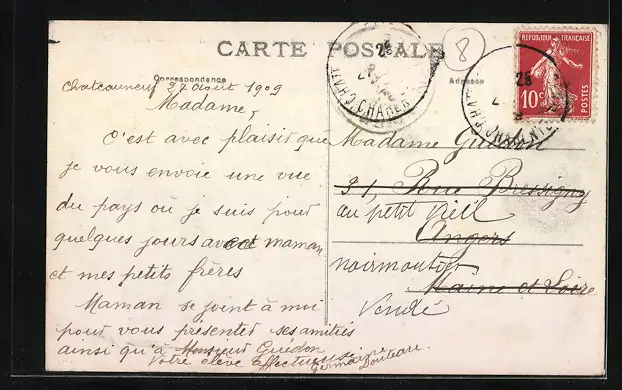 CARTE POSTALE
Correspondance
Adresse
8
REPUBLIQUE FRANÇAISE
10c
POSTES
28
Chateauneuf 27 Août 1909
Madame,
C'est avec plaisir que
je vous envoie une vue
du pays où je suis pour
quelques jours avec maman
et mes petits frères
Maman se joint à moi
pour vous présenter ses amitiés
ainsi qu'à Monsieur Guédon
Votre élève affectueuse
Germaine
Bouteau.
Madame Guédon
31, Rue Bressigny
au petit Vieil
Angers
noirmoutier
Maine et Loire
Vendé